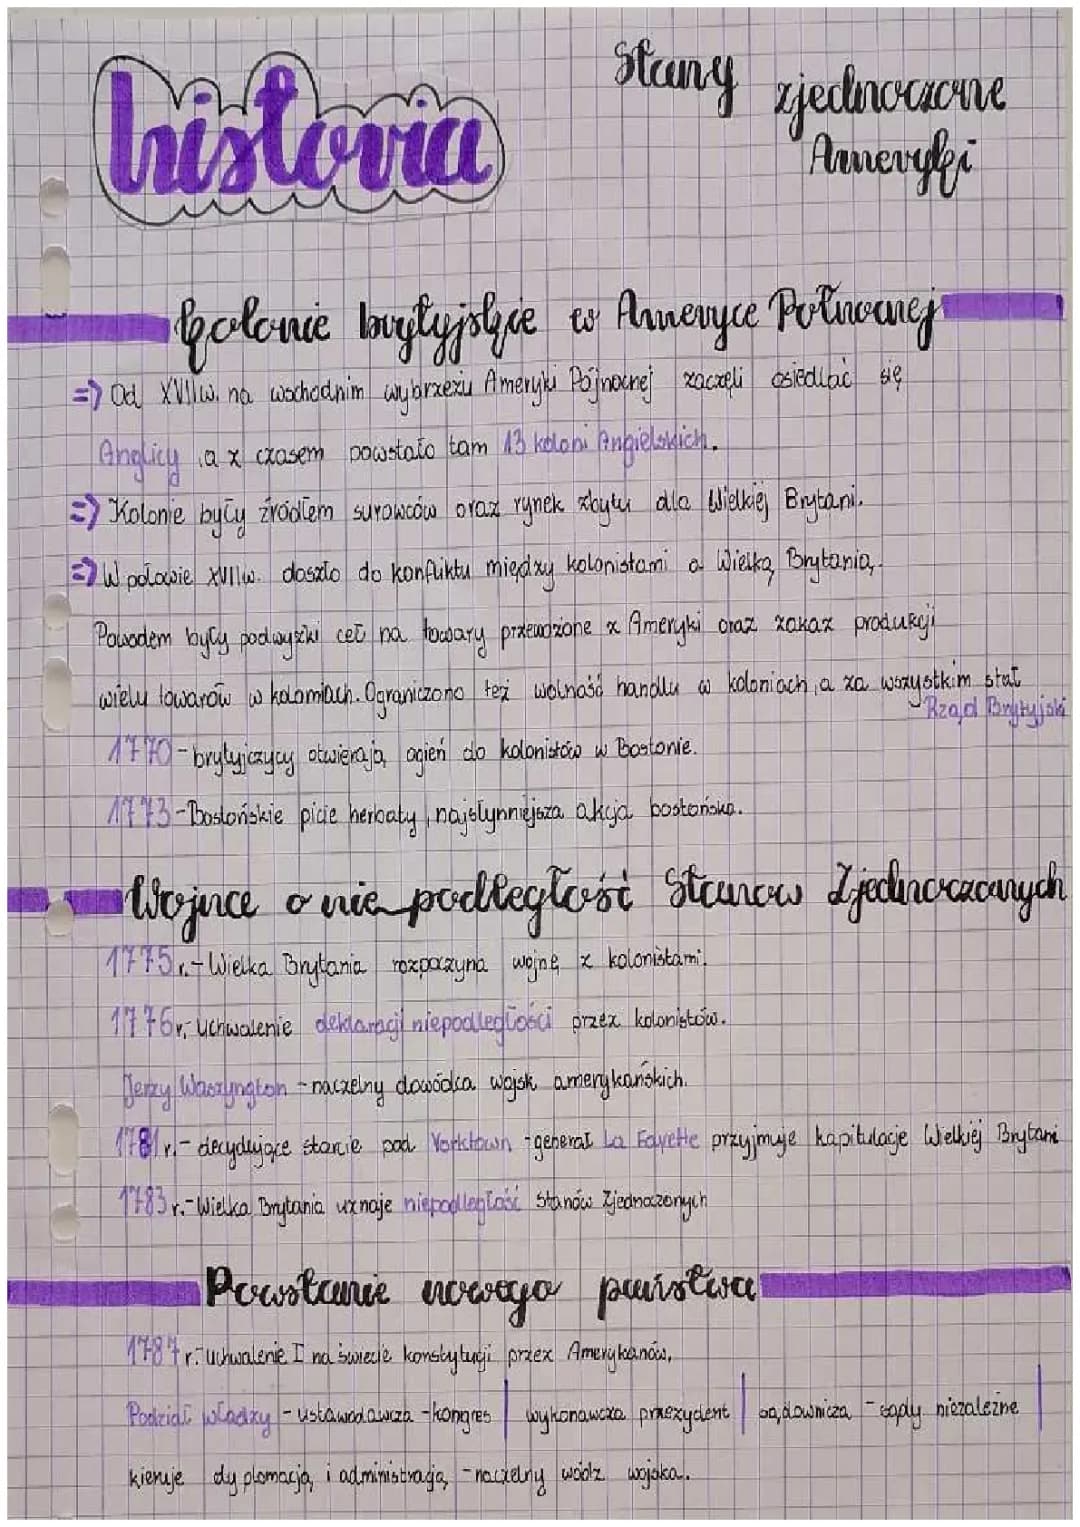 historia
Stany zjednoczone
Ameryki
Kolonie brytyjskie w Ameryce Północnej
=> Od XVIIw. na wschodnim wybrzeżu Ameryki Pójnocnej zaczęli osiedlać się
Anglicy, a z czasem powstało tam 13 koloni Angielskich.
=> Kolonie były źródłem surowców oraz rynek zbytu dla Wielkiej Brytani.
=> W połowie XVIIIw. doszło do konfliktu między kolonistami a Wielką Brytanią.
Powodem były podwyżki ceł na towary przewożone z Ameryki oraz zakaz produkcji
wielu towarów w koloniach. Ograniczono też wolność handlu w koloniach, a za wszystkim stał
Rząd Brytyjski
1770 - brytyjczycy otwierają ogień do kolonistów w Bostonie.
1773 - Bostońskie picie herbaty, najsłynniejsza akcja bostońska.
Wojna o nie podległość Stanów Zjednoczonych
1775r. - Wielka Brytania rozpoczyna wojnę z kolonistami.
1776r. - Uchwalenie deklaracji niepodległości przez kolonistów.
Jerzy Waszyngton - naczelny dowódca wojsk amerykańskich.
1781 r. - decydujące starcie pod Yorktown - generał La Fayette przyjmuje kapitulacje Wielkiej Brytani
1783 r. - Wielka Brytania uznaje niepodległość Stanów Zjednoczonych
Powstanie nowego państwa
1787 r. - uchwalenie I na świecie konstytucji przez Amerykanów.
Podział władzy - ustawodawcza - kongres | wykonawcza prezydent | sądownicza - sądy niezależne |
kieruje dyplomacją i administracją, - naczelny wódz wojska.